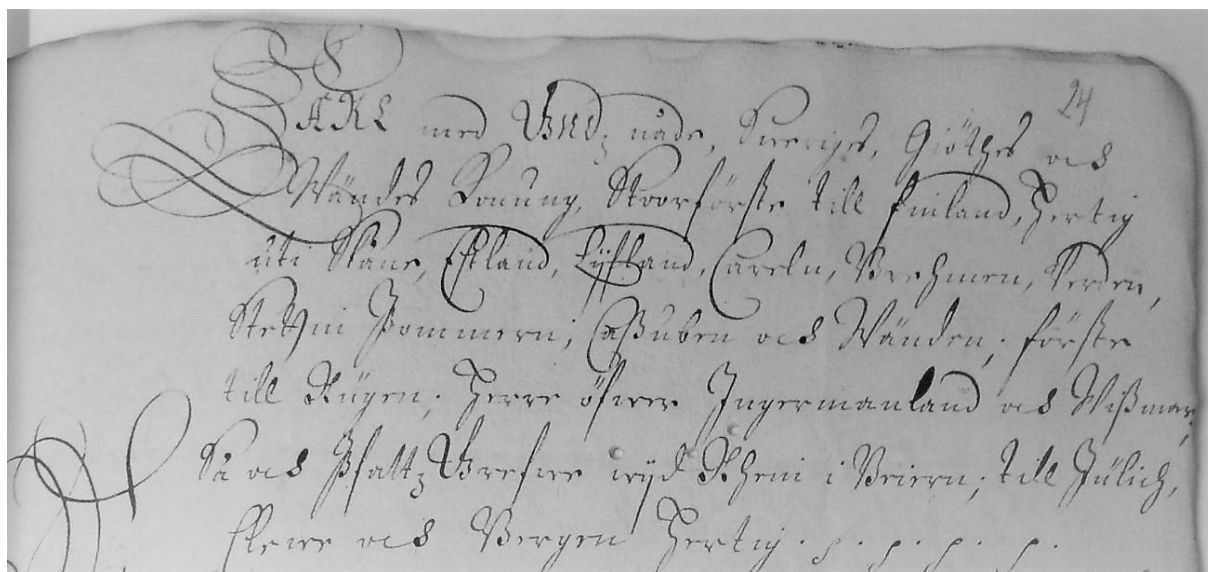 24
CARL med Gudz nåde, Sweriges, Giöthes och
Wändes Konung, Stoorförste till Finland, Hertig
uti Skåne, Estland, Lÿfland, Careln, Brehmen, Verden,
Stettin Pommern, Caßuben och Wänden, förste
till Rügen, Herre öfwer Ingermanland och Wißmar,
Så och Pfaltz Grefwe wijd Rhein i Beiern, till Jülich,
Clewe och Bergen Hertig. p. p. p. p.